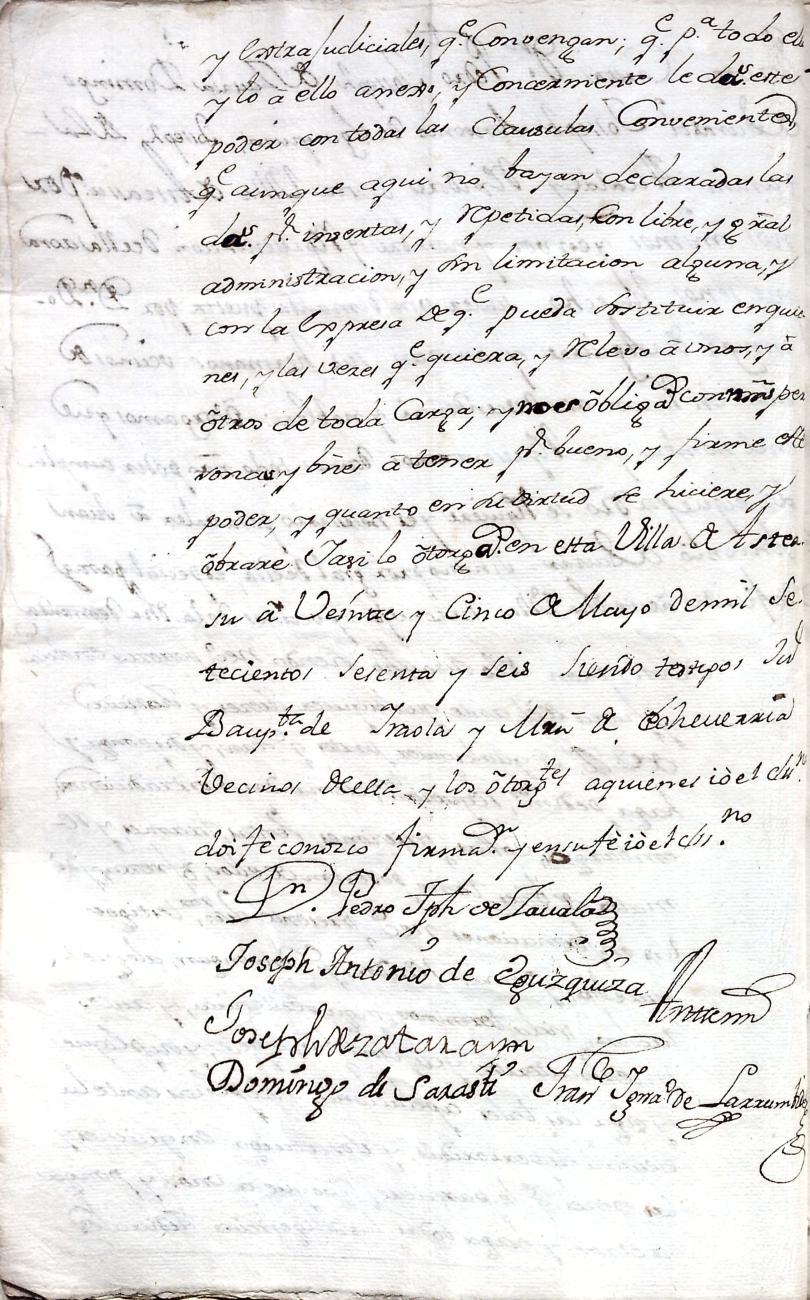 y extraJudiciales, q.e Convengan; q.e p.a todo ello
y lo â ello anexo, y Concerniente le da.s este
poder con todas las Clausulas Convenientes,
q.e aunque aqui no bayan declaradas las
da.s p.r insertas, y repetidas, con libre, y gral
administracion, y sin limitacion alguna, y
con la expresa de q.e pueda sostituir en quie
nes, y las vezes q.e quiera, y relevo â unos, y â
ôtros de toda Carga; y nos ôbliga con nrâs per
sonas y bñes â tener p.r bueno, y firme este
poder, y quanto en su virtud se hiciere, y
ôbrare Iasi lo ôtorga.n en esta Villa de Astea
su â Veinte y Cinco de Mayo de mil se
tecientos sesenta y seis siendo testigos Jud
Baup.ta de Iraola y Mrn de Echeverria
Vecinos de ella y los ôtorg.tes aquienes iô el ess.no
doi fê conozco firma.n y en su fê iô el ess.no
D.n Pedro Jph de Zavala
Joseph Antonio de Eguzquiza
Antemi
Joseph de Zatarain
Domingo de Sarasti Fran.co Igna.o de Larrumbide